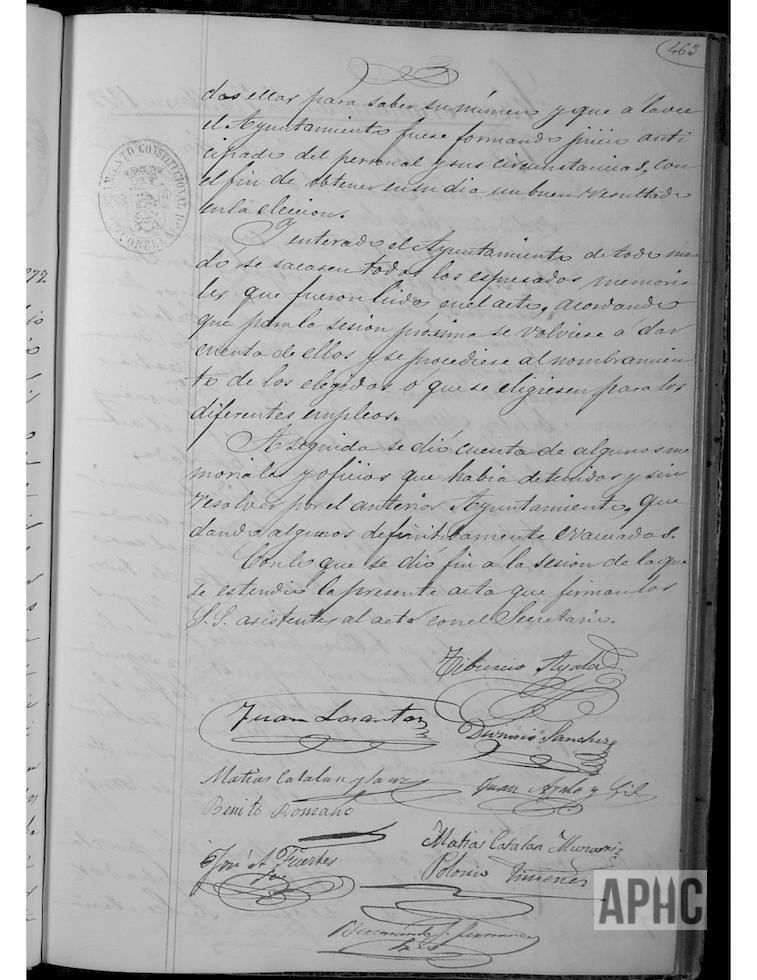 463
das ellas para saber su número y que a la vez
el Ayuntamiento fuese formando juicio anti
cipado del personal y sus circunstancias, con
el fin de obtener en su dia un buen resultado
en la eleccion.
Y enterado el Ayuntamiento de todo man
dó se sacasen todos los espresados memoria
les que fueron leidos en el acto, acordando
que para la sesion próxima se volviese á dar
cuenta de ellos y se procediese al nombramien
to de los elegidos ó que se eligiesen para los
diferentes empleos.
A seguida se dió cuenta de algunos me
moriales y oficios que habia detenidos y sin
resolver por el anterior Ayuntamiento, que
dando algunos definitivamente evacuados.
Con lo que se dió fin á la sesion de la que
se estendió la presente acta que firman los
S.S. asistentes al acto con el Secretario.
Tiburcio Ayala
Juan Lasanta
Dionisio Sanchez
Matias Catalan y Sanz
Juan Ayala y Gil
Benito Romano
Matias Catalan
José A. Fuertes
Polonio Jimenez
APHC
AYUNTAMIENTO CONSTITUCIONAL
1877.